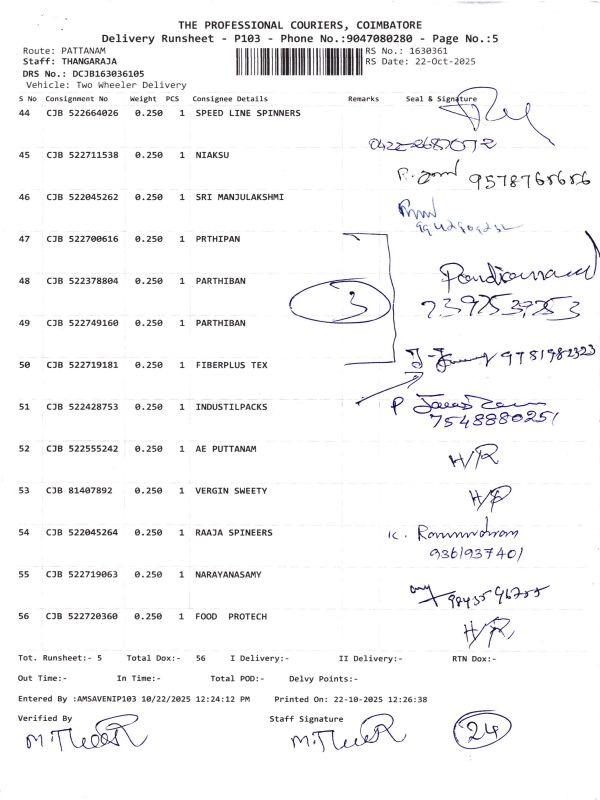 THE PROFESSIONAL COURIERS, COIMBATORE
Delivery Runsheet - P103 - Phone No.:9047080280 - Page No.:5
Route: PATTANAM RS No.: 1630361
Staff: THANGARAJA RS Date: 22-Oct-2025
DRS No.: DCJB163036105
Vehicle: Two Wheeler Delivery
S No Consignment No Weight PCS Consignee Details Remarks Seal & Signature
44 CJB 522664026 0.250 1 SPEED LINE SPINNERS
0422-2687072
45 CJB 522711538 0.250 1 NIAKSU
9578765656
46 CJB 522045262 0.250 1 SRI MANJULAKSHMI
47 CJB 522700616 0.250 1 PRTHIPAN
48 CJB 522378804 0.250 1 PARTHIBAN
3
49 CJB 522749160 0.250 1 PARTHIBAN
50 CJB 522719181 0.250 1 FIBERPLUS TEX
51 CJB 522428753 0.250 1 INDUSTILPACKS
7548880251
52 CJB 522555242 0.250 1 AE PUTTANAM H/R
53 CJB 81407892 0.250 1 VERGIN SWEETY
54 CJB 522045264 0.250 1 RAAJA SPINEERS
9361937401
55 CJB 522719063 0.250 1 NARAYANASAMY
56 CJB 522720360 0.250 1 FOOD PROTECH H/R
Tot. Runsheet:- 5 Total Dox:- 56 I Delivery:- II Delivery:- RTN Dox:-
Out Time:- In Time:- Total POD:- Delvy Points:-
Entered By :AMSAVENIP103 10/22/2025 12:24:12 PM Printed On: 22-10-2025 12:26:38
Verified By Staff Signature
24